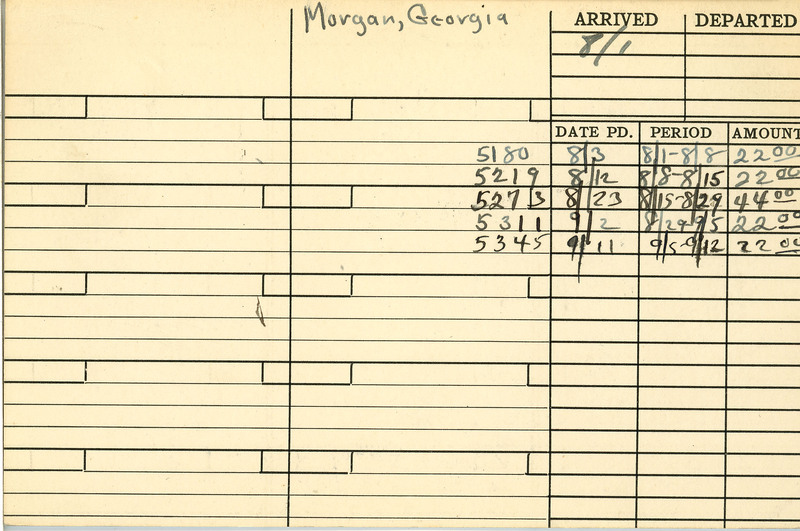 Morgan, Georgia
ARRIVED DEPARTED
8/1
DATE PD. PERIOD AMOUNT
5180 8/3 8/1-8/8 22 00
5219 8/12 8/8-8/15 22 00
5273 8/23 8/15-8/29 44 00
5311 9/2 8/29 9/5 22 00
5345 9/11 9/5-9/12 22 00